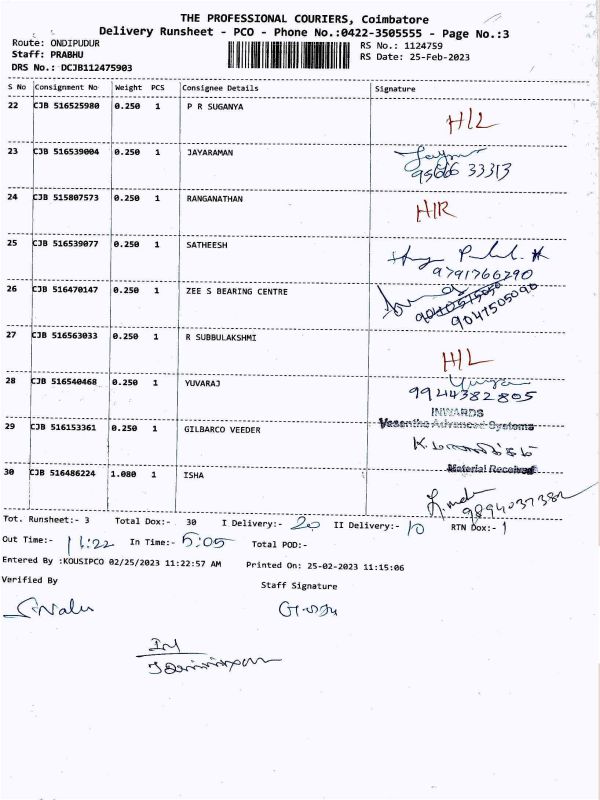 THE PROFESSIONAL COURIERS, Coimbatore
Delivery Runsheet - PCO - Phone No.:0422-3505555 - Page No.:3
Route: ONDIPUDUR
RS No.: 1124759
Staff: PRABHU
RS Date: 25-Feb-2023
DRS No.: DCJB112475903
S No Consignment No Weight PCS Consignee Details Signature
22 CJB 516525980 0.250 1 P R SUGANYA H/L
23 CJB 516539004 0.250 1 JAYARAMAN
95666 33313
24 CJB 515807573 0.250 1 RANGANATHAN H/R
25 CJB 516539077 0.250 1 SATHEESH
9791766290
26 CJB 516470147 0.250 1 ZEE S BEARING CENTRE
9047505090
27 CJB 516563033 0.250 1 R SUBBULAKSHMI H/L
28 CJB 516540468 0.250 1 YUVARAJ
9944382805
INWARDS
29 CJB 516153361 0.250 1 GILBARCO VEEDER Vasantha Advanced Systems
Material Received
30 CJB 516486224 1.080 1 ISHA
9894037382
Tot. Runsheet:- 3 Total Dox:- 30 I Delivery:- 20 II Delivery:- 10 RTN Dox:- 1
Out Time:- 11:22 In Time:- 5:05 Total POD:-
Entered By :KOUSIPCO 02/25/2023 11:22:57 AM Printed On: 25-02-2023 11:15:06
Verified By Staff Signature